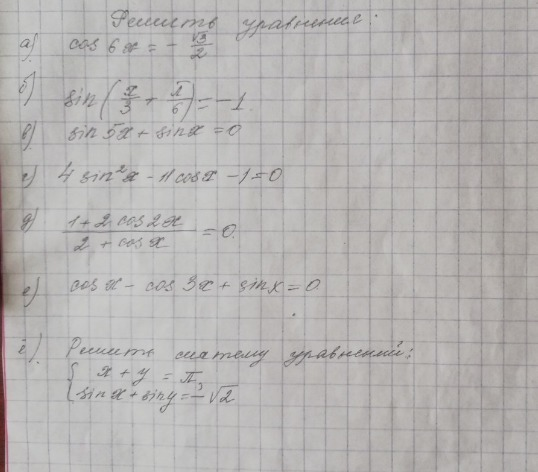 Решить уравнения:
а) cos 6x = - √3/2
б) sin (x/3 + π/6) = -1
в) sin 5x + sin x = 0
г) 4 sin²x - 11 cos x - 1 = 0
д) (1 + 2 cos 2x)/(2 + cos x) = 0.
е) cos x - cos 3x + sin x = 0.
ё). Решить систему уравнений:
{ x + y = π,
sin x + sin y = -√2